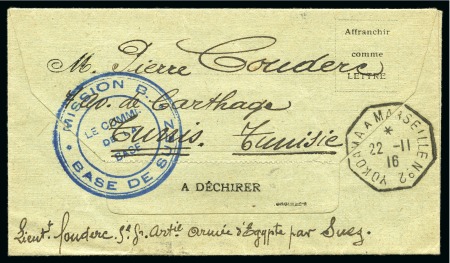 Affranchir
comme
LETTRE
M. Pierre Couderc
Av. de Carthage
Tunis. Tunisie
MISSION B.
LE COMMT
DE LA
BASE
BASE DE SUEZ
YOKOHAMA A MARSEILLE Nº2
*
22 -11
16
A DÉCHIRER
Lieutt Couderc Artie Armée d'Egypte par Suez